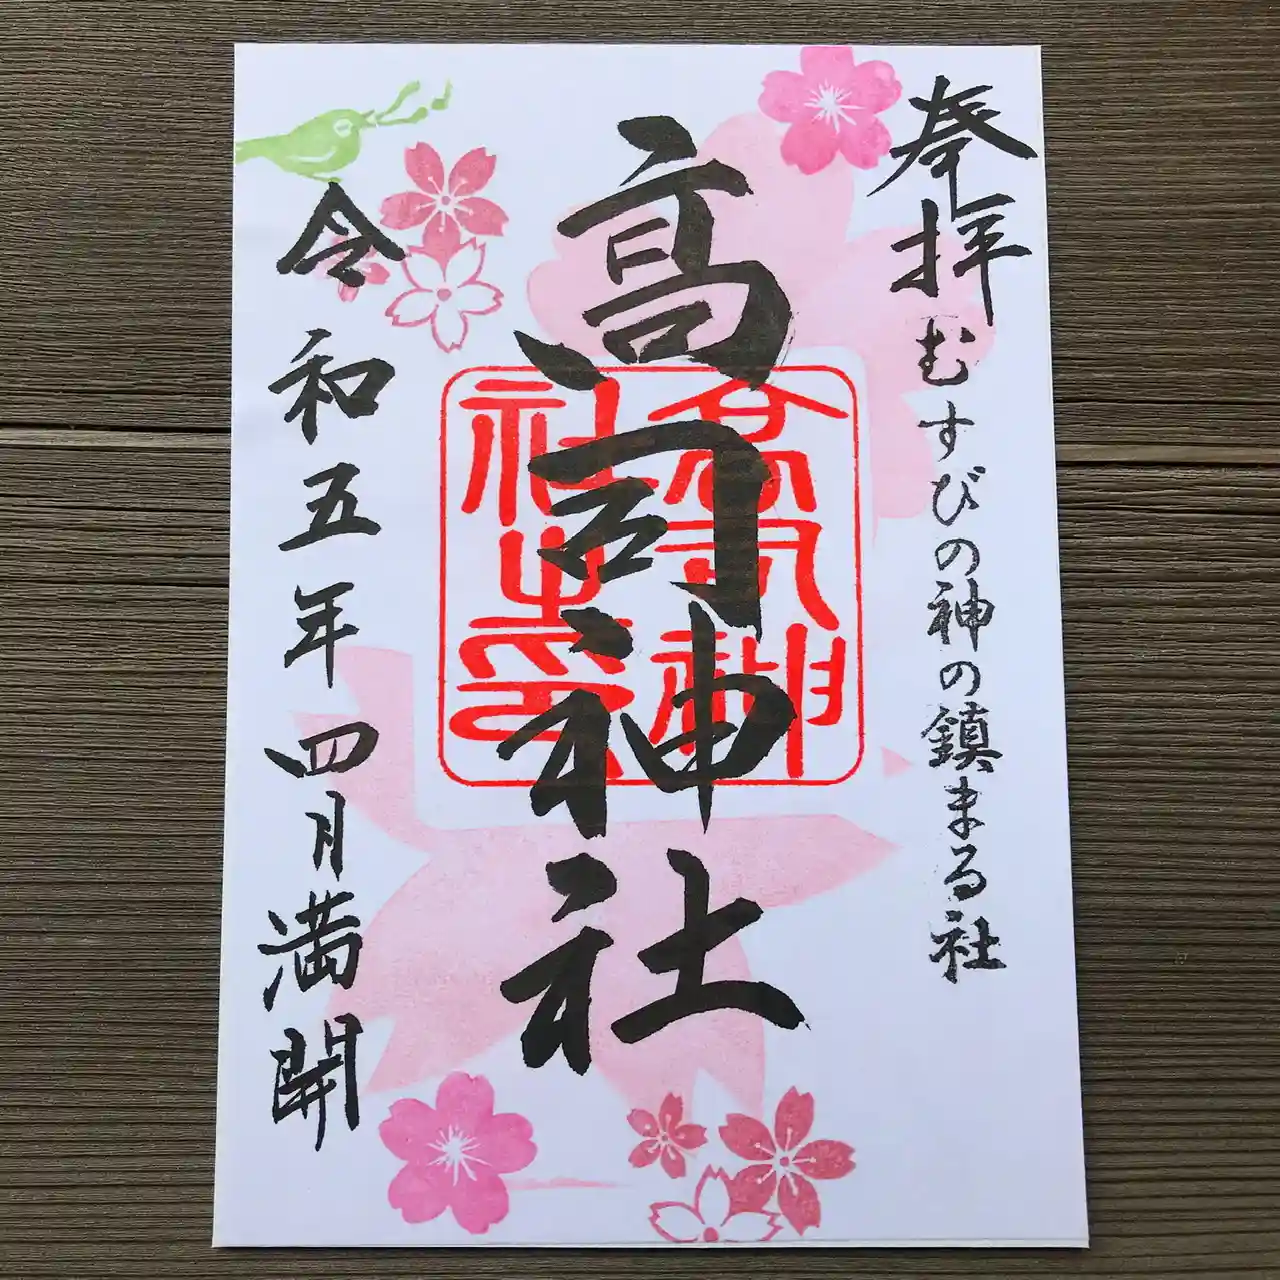 奉拝 むすびの神の鎮まる社
高司神社
高司神
社之印
令和五年四月満開